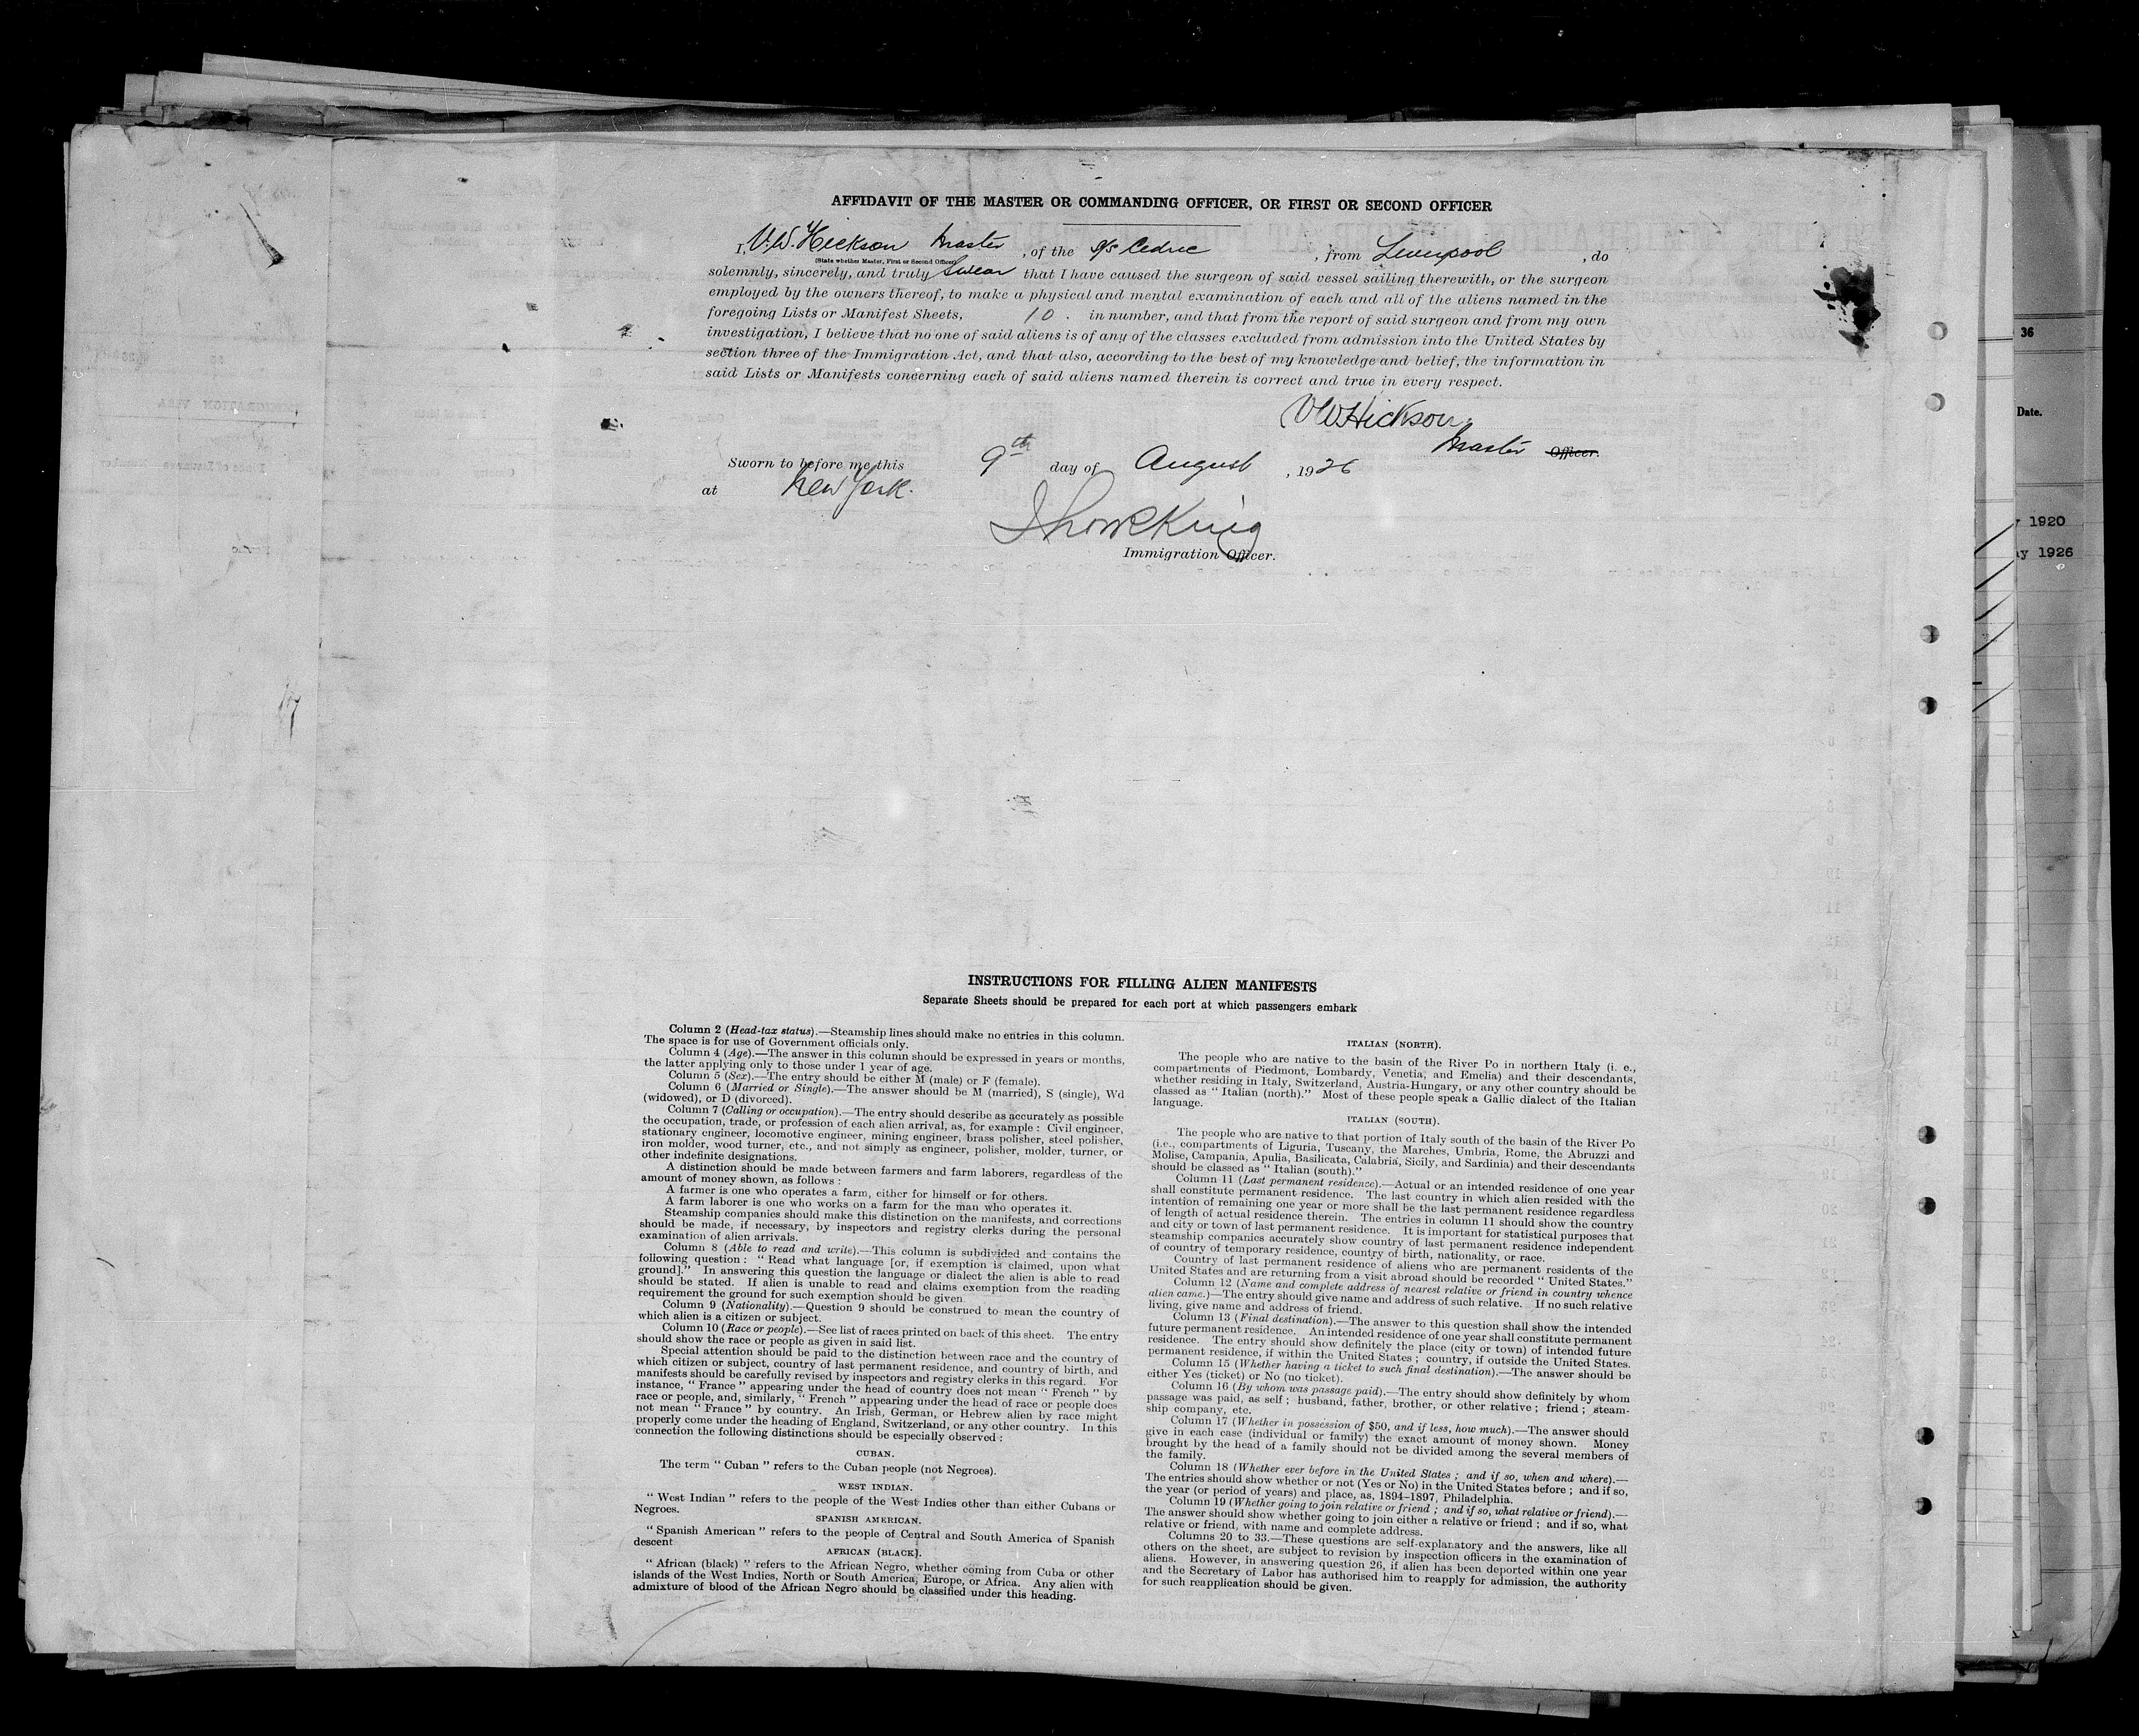 AFFIDAVIT OF THE MASTER OR COMMANDING OFFICER, OR FIRST OR SECOND OFFICER
I, V.W. Hickson Master, of the s/s Cedric, from Liverpool, do
(State whether Master, First or Second Officer)
solemnly, sincerely, and truly Swear that I have caused the surgeon of said vessel sailing therewith, or the surgeon
employed by the owners thereof, to make a physical and mental examination of each and all of the aliens named in the
foregoing Lists or Manifest Sheets, 10. in number, and that from the report of said surgeon and from my own
investigation, I believe that no one of said aliens is of any of the classes excluded from admission into the United States by
section three of the Immigration Act, and that also, according to the best of my knowledge and belief, the information in
said Lists or Manifests concerning each of said aliens named therein is correct and true in every respect.
VWHickson
Master Officer.
Sworn to before me this 9th day of August, 1926
at New York.
King
Immigration Officer.
36
Date.
1920
1926
INSTRUCTIONS FOR FILLING ALIEN MANIFESTS
Separate Sheets should be prepared for each port at which passengers embark
Column 2 (Head-tax status).—Steamship lines should make no entries in this column.
The space is for use of Government officials only.
Column 4 (Age).—The answer in this column should be expressed in years or months,
the latter applying only to those under 1 year of age.
Column 5 (Sex).—The entry should be either M (male) or F (female).
Column 6 (Married or Single).—The answer should be M (married), S (single), Wd
(widowed), or D (divorced).
Column 7 (Calling or occupation).—The entry should describe as accurately as possible
the occupation, trade, or profession of each alien arrival, as, for example : Civil engineer,
stationary engineer, locomotive engineer, mining engineer, brass polisher, steel polisher,
iron molder, wood turner, etc., and not simply as engineer, polisher, molder, turner, or
other indefinite designations.
A distinction should be made between farmers and farm laborers, regardless of the
amount of money shown, as follows :
A farmer is one who operates a farm, either for himself or for others.
A farm laborer is one who works on a farm for the man who operates it.
Steamship companies should make this distinction on the manifests, and corrections
should be made, if necessary, by inspectors and registry clerks during the personal
examination of alien arrivals.
Column 8 (Able to read and write).—This column is subdivided and contains the
following question : “ Read what language [or, if exemption is claimed, upon what
ground].” In answering this question the language or dialect the alien is able to read
should be stated. If alien is unable to read and claims exemption from the reading
requirement the ground for such exemption should be given
Column 9 (Nationality).—Question 9 should be construed to mean the country of
which alien is a citizen or subject.
Column 10 (Race or people).—See list of races printed on back of this sheet. The entry
should show the race or people as given in said list.
Special attention should be paid to the distinction between race and the country of
which citizen or subject, country of last permanent residence, and country of birth, and
manifests should be carefully revised by inspectors and registry clerks in this regard. For
instance, “ France ” appearing under the head of country does not mean “ French ” by
race or people, and, similarly, “ French ” appearing under the head of race or people does
not mean “ France ” by country. An Irish, German, or Hebrew alien by race might
properly come under the heading of England, Switzerland, or any other country. In this
connection the following distinctions should be especially observed :
CUBAN.
The term “ Cuban ” refers to the Cuban people (not Negroes).
WEST INDIAN.
“ West Indian ” refers to the people of the West Indies other than either Cubans or
Negroes.
SPANISH AMERICAN.
“ Spanish American ” refers to the people of Central and South America of Spanish
descent
AFRICAN (BLACK).
“ African (black) ” refers to the African Negro, whether coming from Cuba or other
islands of the West Indies, North or South America, Europe, or Africa. Any alien with
admixture of blood of the African Negro should be classified under this heading.
ITALIAN (NORTH).
The people who are native to the basin of the River Po in northern Italy (i. e.,
compartments of Piedmont, Lombardy, Venetia, and Emelia) and their descendants,
whether residing in Italy, Switzerland, Austria-Hungary, or any other country should be
classed as “ Italian (north).” Most of these people speak a Gallic dialect of the Italian
language.
ITALIAN (SOUTH).
The people who are native to that portion of Italy south of the basin of the River Po
(i.e., compartments of Liguria, Tuscany, the Marches, Umbria, Rome, the Abruzzi and
Molise, Campania, Apulia, Basilicata, Calabria, Sicily, and Sardinia) and their descendants
should be classed as “ Italian (south).”
Column 11 (Last permanent residence).—Actual or an intended residence of one year
shall constitute permanent residence. The last country in which alien resided with the
intention of remaining one year or more shall be the last permanent residence regardless
of length of actual residence therein. The entries in column 11 should show the country
and city or town of last permanent residence. It is important for statistical purposes that
steamship companies accurately show country of last permanent residence independent
of country of temporary residence, country of birth, nationality, or race.
Country of last permanent residence of aliens who are permanent residents of the
United States and are returning from a visit abroad should be recorded “ United States.”
Column 12 (Name and complete address of nearest relative or friend in country whence
alien came.)—The entry should give name and address of such relative. If no such relative
living, give name and address of friend.
Column 13 (Final destination).—The answer to this question shall show the intended
future permanent residence. An intended residence of one year shall constitute permanent
residence. The entry should show definitely the place (city or town) of intended future
permanent residence, if within the United States ; country, if outside the United States.
Column 15 (Whether having a ticket to such final destination).—The answer should be
either Yes (ticket) or No (no ticket).
Column 16 (By whom was passage paid).—The entry should show definitely by whom
passage was paid, as self ; husband, father, brother, or other relative ; friend ; steam-
ship company, etc.
Column 17 (Whether in possession of $50, and if less, how much).—The answer should
give in each case (individual or family) the exact amount of money shown. Money
brought by the head of a family should not be divided among the several members of
the family.
Column 18 (Whether ever before in the United States ; and if so, when and where).—
The entries should show whether or not (Yes or No) in the United States before ; and if so,
the year (or period of years) and place, as, 1894–1897, Philadelphia.
Column 19 (Whether going to join relative or friend ; and if so, what relative or friend).—
The answer should show whether going to join either a relative or friend ; and if so, what
relative or friend, with name and complete address.
Columns 20 to 33.—These questions are self-explanatory and the answers, like all
others on the sheet, are subject to revision by inspection officers in the examination of
aliens. However, in answering question 26, if alien has been deported within one year
and the Secretary of Labor has authorised him to reapply for admission, the authority
for such reapplication should be given.